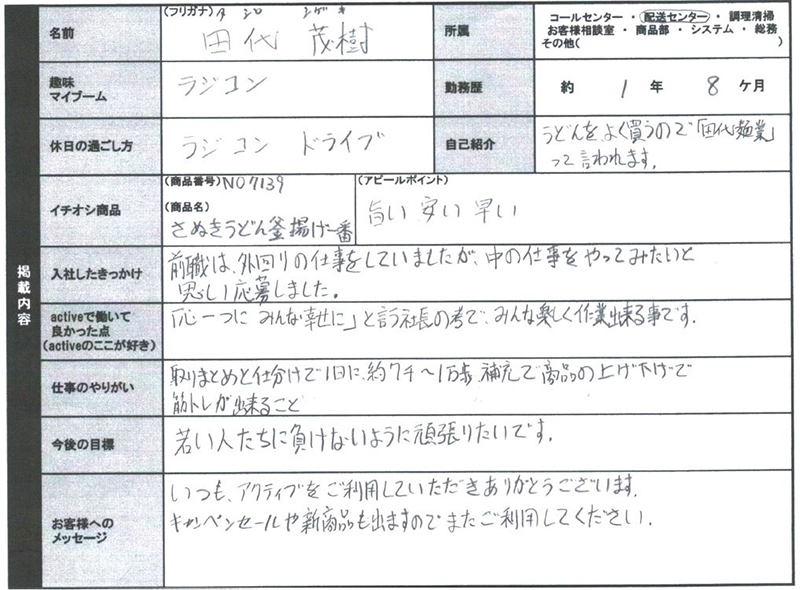 掲載内容
名前
(フリガナ) タシロ シゲキ
田代 茂樹
所属
コールセンター ・ 配送センター ・ 調理清掃
お客様相談室 ・ 商品部 ・ システム ・ 総務
その他( )
趣味
マイブーム
ラジコン
勤務歴
約 1 年 8 ケ月
休日の過ごし方
ラジコン ドライブ
自己紹介
うどんをよく買うので「田代麺業」
って言われます。
イチオシ商品
(商品番号) NO7139
(商品名)
さぬきうどん釜揚げ一番
(アピールポイント)
旨い 安い 早い
入社したきっかけ
前職は、外回りの仕事をしていましたが、中の仕事をやってみたいと
思い応募しました。
activeで働いて
良かった点
(activeのここが好き)
「心一つに みんな幸せに」と言う社長の考で、みんな楽しく作業出来る事です。
仕事のやりがい
取りまとめと仕分けで1日に、約7千〜1万歩、補充で商品の上げ下げで
筋トレが出来ること
今後の目標
若い人たちに負けないように頑張りたいです。
お客様への
メッセージ
いつも、アクティブをご利用していただきありがとうございます。
キャンペンセールや新商品も出ますのでまたご利用してください.